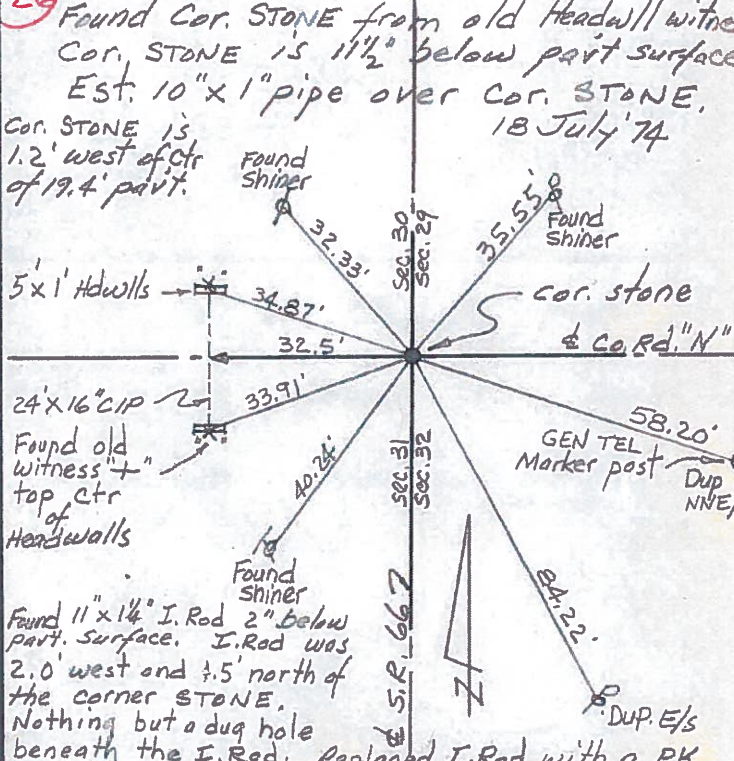 Found Cor. STONE from old Headwll witne
Cor. STONE is 11½" below pav't surface
Est. 10"x1" pipe over Cor. STONE.
18 July '74
Cor. STONE is
1.2' west of Ctr
of 19.4' pav't.
Found
Shiner
32.33'
Sec. 30
Sec. 29
35.55'
Found
Shiner
5'x1' Hdwlls
34.87'
cor. stone
32.5'
℄ Co. Rd. "N"
24'x16" CIP
33.91'
58.20'
GEN TEL
Marker post
Dup
NNE/
Found old
witness "+"
top Ctr
of
Headwalls
40.24'
Sec. 31
Sec. 32
Found
Shiner
84.22'
Found 11"x1¼" I. Rod 2" below
pav't. Surface. I. Rod was
2.0' west and 1.5' north of
the corner STONE.
Nothing but a dug hole
beneath the I. Rod. Replaced I. Rod with a PK
℄ S.R. 667
N
Dup. E/s